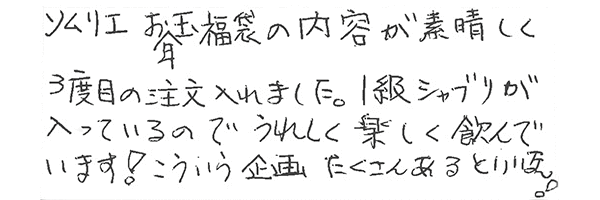 ソムリエ お年玉福袋の内容が素晴しく
3度目の注文入れました。1級シャブリが
入っているのでうれしく楽しく飲んで
います!こういう企画たくさんあるといいな。